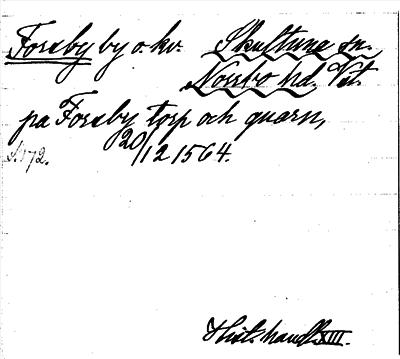 Forsby by o. kv. Skultuna sn.
Norrbo hd. Vst.
pa Forsby torp och quarn,
20/12 1564.
S. 172.
Hist. handl. XIII.